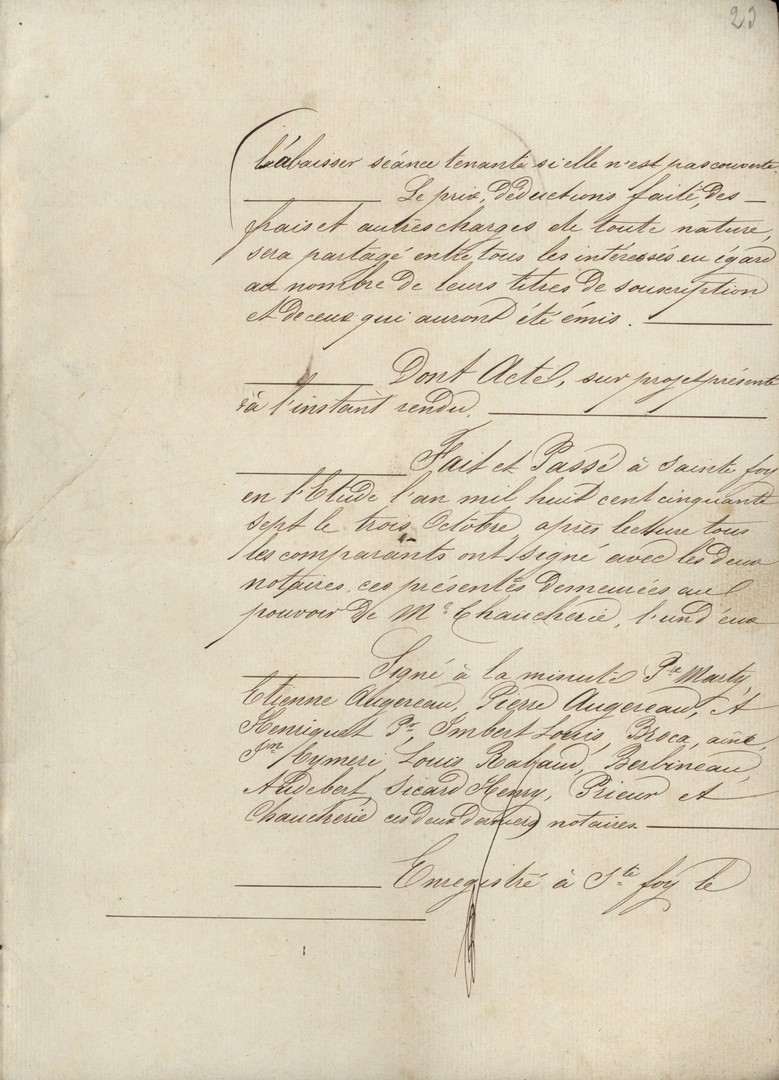 23
l'abaisser séance tenante si elle n'est pas couverte.
Le prix, déductions faite, des
frais et autres charges de toute nature,
sera partagé entre tous les intéressés eu égard
au nombre de leurs titres de souscription
et de ceux qui auront été émis.
Dont Acte, sur projet présenté
à l'instant rendu.
Fait et Passé à Sainte foy
en l'Etude l'an mil huit cent cinquante
sept le trois Octobre, après lecture tous
les comparants ont signé avec les deux
notaires, ces présentes demeurées au
pouvoir de Me Chaucherie, l'un d'eux
Signé à la minute Pre Marty
Etienne Augereau, Pierre Augereau, A
Henriquet Pre, Imbert Louis, Broca, aîné,
Jm Eymeri, Louis Rabaud, Berbineau,
Audebert, Sicard Henry, Prieur et
Chaucherie ces deux derniers notaires.
Enregistré à Ste foy le